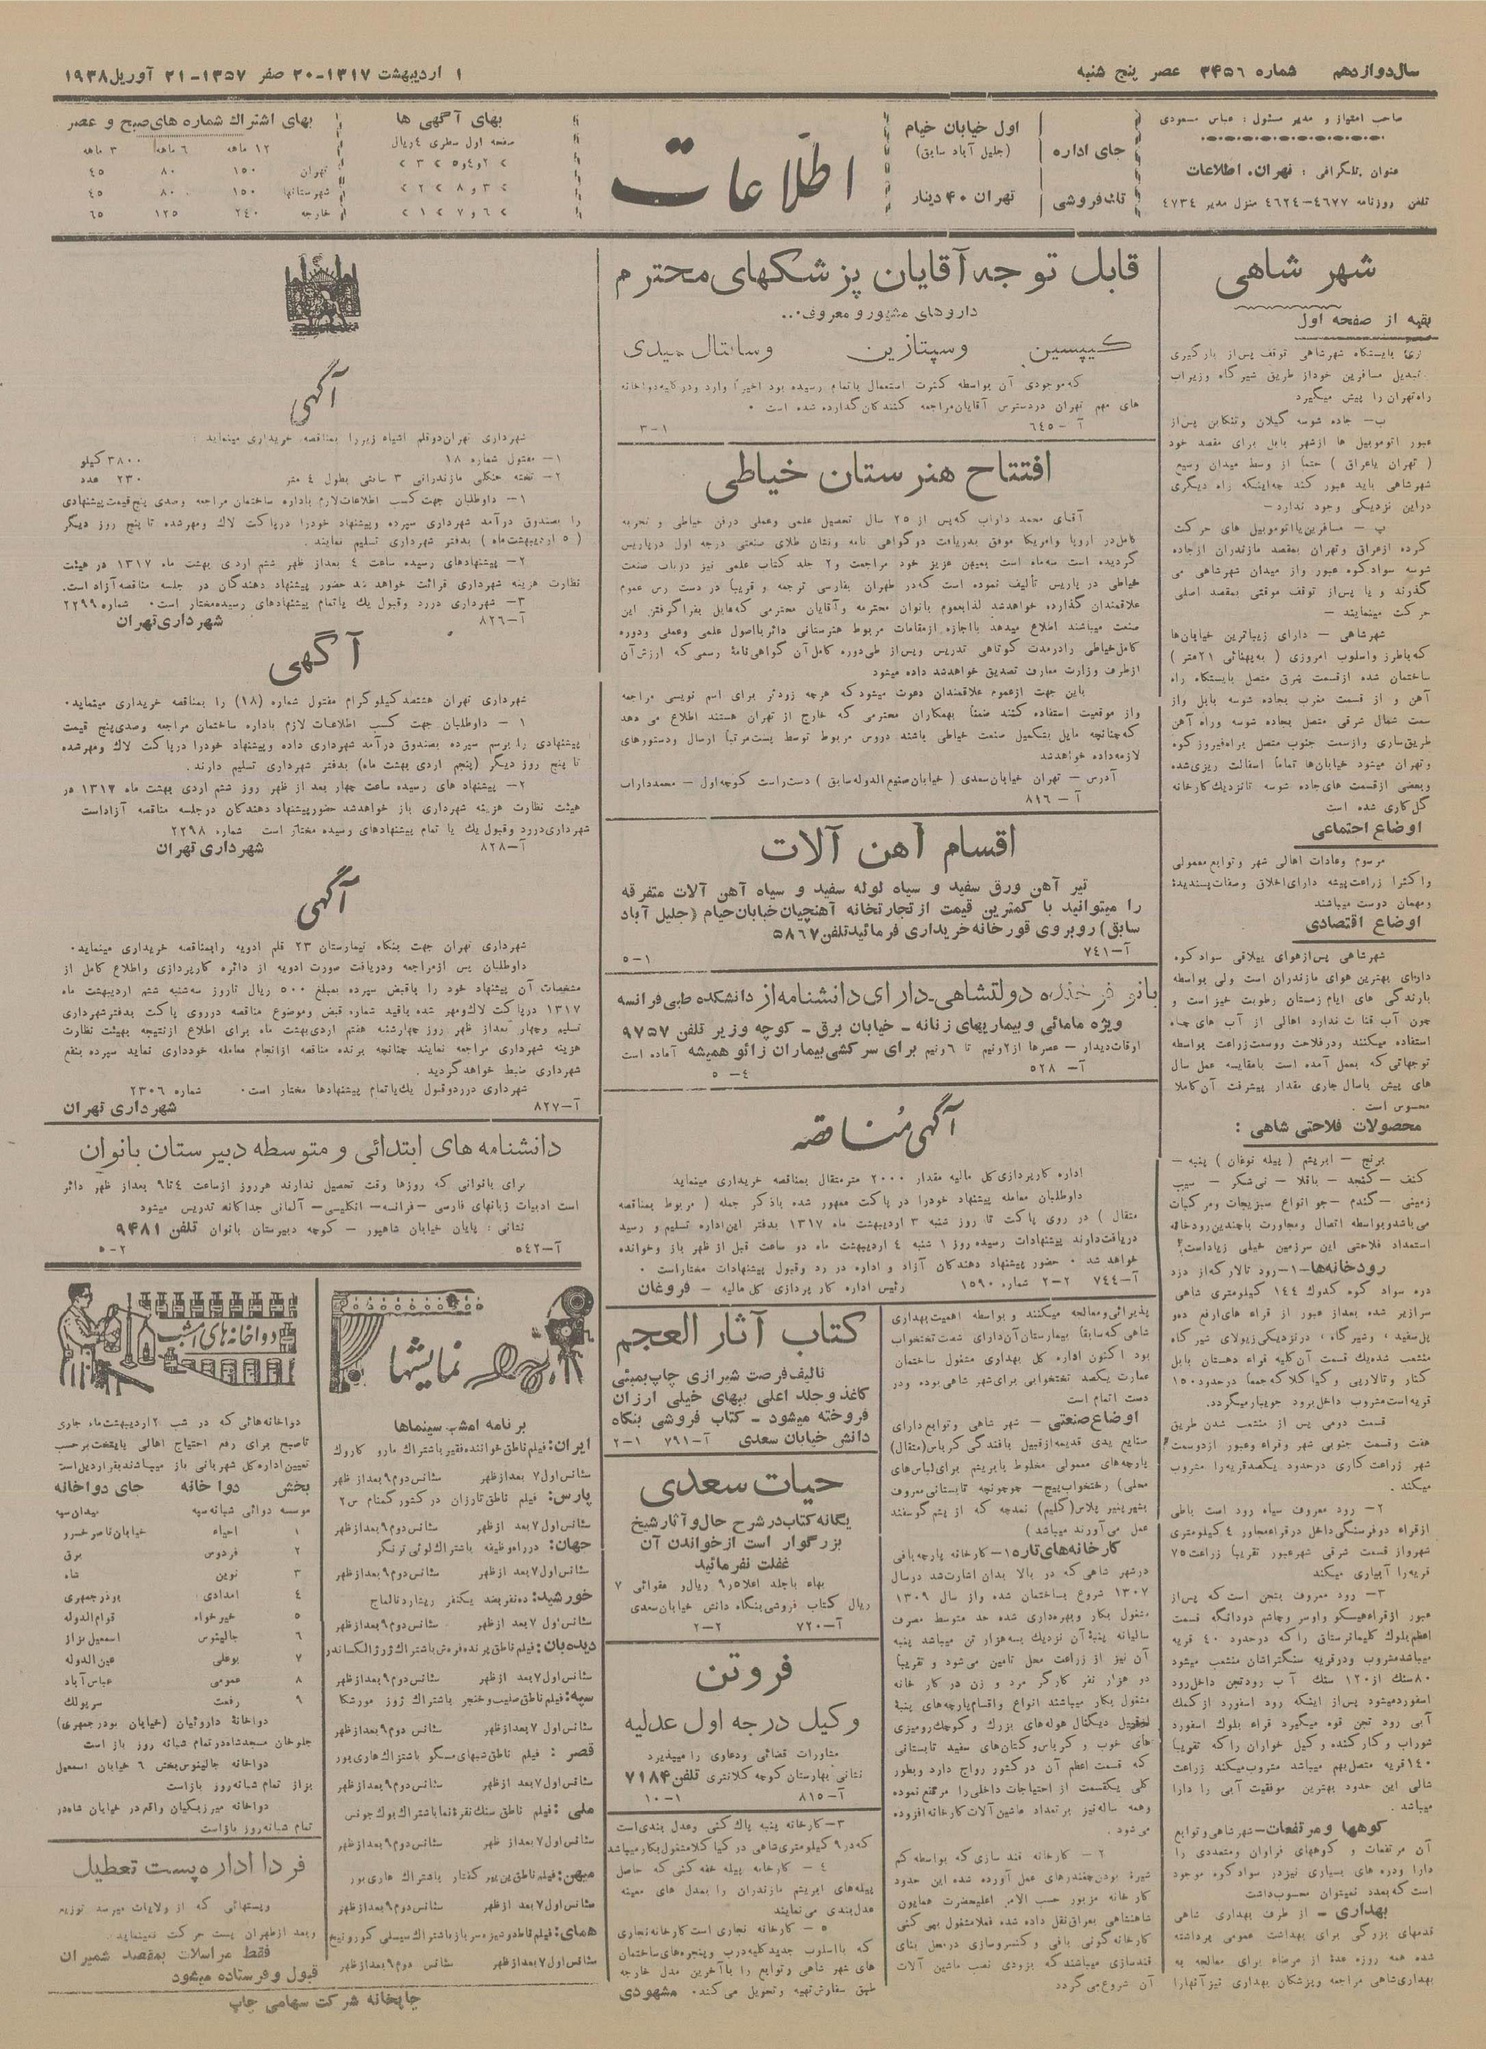 سال دوازدهم شماره ۳۴۵۶ عصر پنج شنبه
۱ اردیبهشت ۱۳۱۷-۲۰ صفر ۱۳۵۷-۲۱ آوریل ۱۹۳۸
صاحب امتیاز و مدیر مسئول : عباس مسعودی
عنوان تلگرافی : تهران، اطلاعات
تلفن روزنامه ۴۶۷۷-۴۶۲۴ منزل مدیر ۴۷۳۴
جای اداره
اول خیابان خیام
(جلیل آباد سابق)
تك فروشی
تهران ۴۰ دینار
اطلاعات
بهای آگهی ها
صفحه اول سطری ۴ ریال
بهای اشتراك شماره های صبح و عصر
۱۲ ماهه ۶ ماهه ۳ ماهه
تهران ۱۵۰ ۸۰ ۴۵
شهرستانها ۱۵۰ ۸۰ ۴۵
خارجه ۲۴۰ ۱۲۵ ۶۵
شهر شاهی
بقیه از صفحه اول
ایستگاه شهرشاهی توقف پس از بارگیری
تبدیل مسافرین خود از طریق شیرگاه و زیراب
راه تهران را پیش میگیرد
ب- جاده شوسه گیلان و تنکابن پس از
عبور اتوموبیل ها از شهر بابل برای مقصد خود
( تهران یا عراق ) حتماً از وسط میدان وسیع
شهرشاهی باید عبور کند چه اینکه راه دیگری
در این نزدیکی وجود ندارد-
پ - مسافرین با اتوموبیل های حرکت
کرده از عراق و تهران بمقصد مازندران از جاده
شوسه سوادکوه عبور و از میدان شهرشاهی می
گذرند و یا پس از توقف موقتی بمقصد اصلی
حرکت مینمایند -
شهرشاهی - دارای زیباترین خیابانها
که با طرز و اسلوب امروزی ( به پهنائی ۲۱ متر )
ساختمان شده از قسمت شرق متصل بایستگاه راه
آهن و از قسمت مغرب بجاده شوسه بابل و از
سمت شمال شرقی متصل بجاده شوسه و راه آهن
طریق ساری و از سمت جنوب متصل براه فیروزکوه
و تهران میشود خیابانها تماماً اسفالت ریزی شده
و بعضی از قسمت های جاده شوسه تا نزدیك کارخانه
گل کاری شده است
اوضاع اجتماعی
مرسوم و عادات اهالی شهر و توابع معمولی
و اکثراً زراعت پیشه دارای اخلاق و صفات پسندیده
و مهمان دوست میباشند
اوضاع اقتصادی
شهرشاهی پس از هوای ییلاقی سوادکوه
دارای بهترین هوای مازندران است ولی بواسطه
بارندگی های ایام زمستان رطوبت خیز است و
چون آب قنات ندارد اهالی از آب های چاه
استفاده میکنند و در فلاحت و وسعت زراعت بواسطه
توجهاتی که بعمل آمده است با مقایسه عمل سال
های پیش با سال جاری مقدار پیشرفت آن کاملا
محسوس است .
محصولات فلاحتی شاهی :
برنج - ابریشم ( پیله نوغان ) پنبه -
کنف - کنجد - باقلا - نی شکر - سیب
زمینی - گندم - جو انواع سبزیجات و مرکبات
می باشد و بواسطه اتصال و مجاورت با چندین رودخانه
استعداد فلاحتی این سرزمین خیلی زیاد است
رودخانه ها-۱- رود تالار که از دزد
دره سواد کوه کدوك ۱۴۴ کیلومتری شاهی
سرازیر شده بعد از عبور از قراء های ارفع ده و
پل سفید ، و شیرگاه ، در نزدیکی زیولای شیرگاه
منشعب شده یك قسمت آن کلیه قراء دهستان بابل
کنار و تالارپی و کیاکلا که جمعاً در حدود ۱۵۰
قریه است مشروب داخل برود جویبار میگردد.
قسمت دومی پس از منشعب شدن طریق
هفت و قسمت جنوبی شهر و قراء و عبور از دوسمت
شهر زراعت کاری در حدود یکصد قریه را مشروب
میکند .
۲- رود معروف سیاه رود است باطی
از قراء دوفرسنگی داخل در قراء مجاور ۴ کیلومتری
شهر و از قسمت شرقی شهر عبور تقریباً زراعت ۷۵
قریه را آبیاری میکند
۳- رود معروف بتجن است که پس از
۱۴۰ قریه متصل بهم میباشد مشروب میکند زراعت
شالی این حدود بهترین موفقیت آبی را دارا
میباشد .
کوهها و مرتفعات- شهر شاهی و توابع
آن مرتفعات و کوههای فراوان و متعددی را
دارا و دره های بسیاری نیز در سوادکوه موجود
است که بعدد نمیتوان محسوب داشت
بهداری - از طرف بهداری شاهی
قدمهای بزرگی برای بهداشت عمومی برداشته
شده همه روزه عدهٔ از مرضاء برای معالجه به
بهداری شاهی مراجعه و پزشکان بهداری نیز آنها را
قابل توجه آقایان پزشکهای محترم
داروهای مشهور و معروف...
کیپسین و سپتازین و سانتال میدی
که موجودی آن بواسطه کثرت استعمال باتمام رسیده بود اخیراً وارد و در کلیه دواخانه
های مهم تهران در دسترس آقایان مراجعه کنندگان گذارده شده است .
آ - ۶۴۵ ۱-۳
افتتاح هنرستان خیاطی
آقای محمد داراب که پس از ۲۵ سال تحصیل علمی و عملی در فن خیاطی و تجربه
کامل در اروپا و امریکا موفق بدریافت دو گواهی نامه و نشان طلای صنعتی درجه اول در پاریس
گردیده است سه ماه است بمیهن عزیز خود مراجعت و ۲ جلد کتاب علمی نیز در باب صنعت
خیاطی در پاریس تألیف نموده است که در طهران بفارسی ترجمه و قریباً در دست رس عموم
علاقمندان گذارده خواهد شد لذا بعموم بانوان محترمه و آقایان محترمی که مایل بفراگرفتن این
صنعت میباشند اطلاع میدهد با اجازه از مقامات مربوط هنرستانی دائر با اصول علمی و عملی و دوره
کامل خیاطی را در مدت کوتاهی تدریس و پس از طی دوره کامل آن گواهی نامهٔ رسمی که ارزش آن
از طرف وزارت معارف تصدیق خواهد شد داده میشود
باین جهت از عموم علاقمندان دعوت میشود که هرچه زودتر برای اسم نویسی مراجعه
و از موقعیت استفاده کنند ضمناً بهمکاران محترمی که خارج از تهران هستند اطلاع می دهد
که چنانچه مایل بتکمیل صنعت خیاطی باشند دروس مربوط توسط پست مرتباً ارسال و دستورهای
لازمه داده خواهد شد
آدرس - تهران خیابان سعدی ( خیابان صنیع الدوله سابق ) دست راست کوچه اول - محمد داراب
آ - ۸۱۶
اقسام آهن آلات
تیر آهن ورق سفید و سیاه لوله سفید و سیاه آهن آلات متفرقه
را میتوانید با کمترین قیمت از تجارتخانه آهنچیان خیابان خیام (جلیل آباد
سابق) روبروی قورخانه خریداری فرمائید تلفن ۵۸۶۷
آ-۷۴۱ ۱-۵
بانو فرخنده دولتشاهی-دارای دانشنامه از دانشکده طبی فرانسه
ویژه مامائی و بیماریهای زنانه - خیابان برق - کوچه وزیر تلفن ۹۷۵۷
اوقات دیدار - عصرها از ۲ و نیم تا ۶ و نیم برای سرکشی بیماران زائو همیشه آماده است
آ- ۵۲۸ ۴- ۵
آگهی مناقصه
اداره کارپردازی کل مالیه مقدار ۲۰۰۰ متر متقال بمناقصه خریداری مینماید
داوطلبان معامله پیشنهاد خود را در پاکت ممهور شده باذکر جمله ( مربوط بمناقصه
متقال ) در روی پاکت تا روز شنبه ۳ اردیبهشت ماه ۱۳۱۷ بدفتر این اداره تسلیم و رسید
دریافت دارند پیشنهادات رسیده روز ۱ شنبه ۴ اردیبهشت ماه دو ساعت قبل از ظهر باز و خوانده
خواهد شد . حضور پیشنهاد دهندگان آزاد و اداره در رد و قبول پیشنهادات مختار است .
آ-۷۴۴ ۲-۲ شماره ۱۵۹۰ رئیس اداره کارپردازی کل مالیه - فروغان
پذیرائی و معالجه میکنند و بواسطه اهمیت بهداری
شاهی که سابقاً بیمارستان آن دارای شصت تختخواب
بود اکنون اداره کل بهداری مشغول ساختمان
عمارت یکصد تختخوابی برای شهرشاهی بوده و در
دست اتمام است
اوضاع صنعتی - شهر شاهی و توابع دارای
صنایع یدی قدیمه از قبیل بافندگی کرباس (متقال)
پارچه های معمولی مخلوط بابریشم برای لباس های
محلی) رختخواب پیچ - چوچونچه تابستانی معروف
بشهر پنیر پلاس (گلیم) نمدچه که از پشم گوسفند
عمل می آورند میباشد )
کارخانه های تاره ۱- کارخانه پارچه بافی
در شهر شاهی که در بالا بدان اشارت شد در سال
۱۳۰۷ شروع بساختمان شده و از سال ۱۳۰۹
مشغول بکار و بهره داری شده حد متوسط مصرف
سالیانه پنبهٔ آن نزدیك بسه هزار تن میباشد پنبه
آن نیز از زراعت محل تامین می شود و تقریباً
دو هزار نفر کارگر مرد و زن در کارخانه
مشغول بکار میباشند انواع و اقسام پارچه های پنبهٔ
از قبیل دیگنال هوله های بزرك و کوچك رومیزی
های خوب و کرباس و کتان های سفید تابستانی
که قسمت اعظم آن در کشور رواج دارد و بطور
کلی یکقسمت از احتیاجات داخلی را مرتفع نموده
و همه ساله نیز بر تعداد ماشین آلات کارخانه افزوده
می شود .
۲- کارخانه قند سازی که بواسطه کم
شیرهٔ بودن چغندرهای عمل آورده شده این حدود
کارخانه مزبور حسب الامر اعلیحضرت همایون
شاهنشاهی بعراق نقل داده شده فعلا مشغول بهی کنی
کارخانه گونی بافی و کنسروسازی در محل بنای
قندسازی میباشند که بزودی نصب ماشین آلات
آن شروع می گردد
کتاب آثار العجم
تالیف فرصت شیرازی چاپ بمبئی
کاغذ و جلد اعلی ببهای خیلی ارزان
فروخته میشود - کتاب فروشی بنگاه
دانش خیابان سعدی آ-۷۹۱ ۱-۲
حیات سعدی
یگانه کتاب در شرح حال و آثار شیخ
بزرگوار است از خواندن آن
غفلت نفرمائید
بهاء با جلد اعلا ۹٫۵ ریال و مقوائی ۷
ریال کتاب فروشی بنگاه دانش خیابان سعدی
آ-۷۲۰ ۲-۲
فروتن
وکیل درجه اول عدلیه
مشاورات قضائی و دعاوی را میپذیرد
نشانی بهارستان کوچه کلانتری تلفن ۷۱۸۴
آ-۸۱۵ ۱-۱۰
۳- کارخانه پنبه پاك کنی و عدل بندی است
که در ۹ کیلومتری شاهی در کیاکلا مشغول بکار میباشد
۴ - کارخانه پیله خفه کنی که حاصل
پیله های ابریشم مازندران را بمدل های معینه
عدل بندی می نمایند
۵ - کارخانه نجاری است کارخانه نجاری
که با اسلوب جدید کلیه درب و پنجره های ساختمان
های شهر شاهی و توابع را با آخرین مدل خارجه
طبق سفارش تهیه و تحویل می کند. مشهودی
آگهی
شهرداری تهران دو قلم اشیاء زیر را بمناقصه خریداری مینماید :
۱- مفتول شماره ۱۸ ۳۸۰۰ کیلو
۲- تخته جنگلی مازندرانی ۳ سانتی بطول ۴ متر ۲۳۰ عدد
۱- داوطلبان جهت کسب اطلاعات لازم باداره ساختمان مراجعه و صدی پنج قیمت پیشنهادی
را بصندوق درآمد شهرداری سپرده و پیشنهاد خود را در پاکت لاك و مهر شده تا پنج روز دیگر
( ۵ اردیبهشت ماه ) بدفتر شهرداری تسلیم نمایند .
۲- پیشنهادهای رسیده ساعت ۴ بعد از ظهر ششم اردی بهشت ماه ۱۳۱۷ در هیئت
نظارت هزینه شهرداری قرائت خواهد شد حضور پیشنهاد دهندگان در جلسه مناقصه آزاد است.
۳- شهرداری در رد و قبول یك یا تمام پیشنهادهای رسیده مختار است . شماره ۲۲۹۹
آ-۸۲۶ شهرداری تهران
آگهی
شهرداری تهران هشتصد کیلوگرام مفتول شماره (۱۸) را بمناقصه خریداری مینماید.
۱ - داوطلبان جهت کسب اطلاعات لازم باداره ساختمان مراجعه و صدی پنج قیمت
پیشنهادی را برسم سپرده بصندوق درآمد شهرداری داده و پیشنهاد خود را در پاکت لاك و مهر شده
تا پنج روز دیگر (پنجم اردی بهشت ماه) بدفتر شهرداری تسلیم دارند .
۲- پیشنهاد های رسیده ساعت چهار بعد از ظهر روز ششم اردی بهشت ماه ۱۳۱۷ در
هیئت نظارت هزینه شهرداری باز خواهد شد حضور پیشنهاد دهندگان در جلسه مناقصه آزاد است
شهرداری در رد و قبول یك یا تمام پیشنهادهای رسیده مختار است شماره ۲۲۹۸
آ-۸۲۸ شهرداری تهران
آگهی
شهرداری تهران جهت بنگاه تیمارستان ۲۳ قلم ادویه را بمناقصه خریداری مینماید.
داوطلبان پس از مراجعه و دریافت صورت ادویه از دائره کارپردازی و اطلاع کامل از
مشخصات آن پیشنهاد خود را با قبض سپرده بمبلغ ۵۰۰ ریال تا روز سه شنبه ششم اردیبهشت ماه
۱۳۱۷ در پاکت لاك و مهر شده با قید شماره قبض و موضوع مناقصه در روی پاکت بدفتر شهرداری
تسلیم و چهار بعد از ظهر روز چهارشنبه هفتم اردی بهشت ماه برای اطلاع از نتیجه بهیئت نظارت
هزینه شهرداری مراجعه نمایند چنانچه برنده مناقصه از انجام معامله خودداری نماید سپرده بنفع
شهرداری ضبط خواهد گردید .
شهرداری در رد و قبول یك یا تمام پیشنهادها مختار است . شماره ۲۳۰۶
آ-۸۲۷ شهرداری تهران
دانشنامه های ابتدائی و متوسطه دبیرستان بانوان
برای بانوانی که روزها وقت تحصیل ندارند هر روز از ساعت ۴ تا ۹ بعد از ظهر دائر
است ادبیات زبانهای فارسی - فرانسه - انگلیسی - آلمانی جداگانه تدریس میشود
نشانی : پایان خیابان شاهپور - کوچه دبیرستان بانوان تلفن ۹۴۸۱
آ-۵۴۲ ۲-۵
نمایشها
برنامه امشب سینماها
ایران: فیلم ناطق خواننده فقیر باشتراك مارو کاروك
سئانس اول ۷ بعد از ظهر سئانس دوم ۹ بعد از ظهر
پارس: فیلم ناطق تارزان در کشور گمنام س ۲
سئانس اول ۷ بعد از ظهر سئانس دوم ۹ بعد از ظهر
جهان: در راه وظیفه باشتراك لوئی ترنگر
سئانس اول ۷ بعد از ظهر سئانس دوم ۹ بعد از ظهر
خورشید: ده نفر بضد یکنفر ریشارد تالماج
سئانس اول ۷ بعد از ظهر سئانس دوم ۹ بعد از ظهر
دیده بان: فیلم ناطق پرنده فروش باشتراك ژرژ الکساندر
سئانس اول ۷ بعد از ظهر سئانس دوم ۹ بعد از ظهر
سپه: فیلم ناطق صلیب و خنجر باشتراك ژوز مورشکا
سئانس اول ۷ بعد از ظهر سئانس دوم ۹ بعد از ظهر
قصر : فیلم ناطق شبهای مسکو باشتراك هاری بور
سئانس اول ۷ بعد از ظهر سئانس دوم ۹ بعد از ظهر
ملی : فیلم ناطق سنك نقره نما باشتراك بوك جونس
سئانس اول ۷ بعد از ظهر سئانس دوم ۹ بعد از ظهر
میهن: باشتراك هاری بور
سئانس اول ۷ بعد از ظهر سئانس دوم ۹ بعد از ظهر
همای:
سئانس اول ۷ بعد از ظهر سئانس دوم ۹ بعد از ظهر
دواخانه های امشب
دواخانه هائی که در شب ۲ اردیبهشت ماه جاری
تا صبح برای رفع احتیاج اهالی پایتخت برحسب
تعیین اداره کل شهربانی باز میباشند بقرار ذیل است
بخش دواخانه جای دواخانه
موسسه دوائی شبانه سپه میدان سپه
۱ احیاء خیابان ناصر خسرو
۲ فردوس برق
۳ نوین شاه
۴ امدادی بوذرجمهری
۵ خیرخواه قوام الدوله
۶ جالینوس اسمعیل بزاز
۷ بوعلی عین الدوله
۸ عمومی عباس آباد
۹ رفعت سرپولك
دواخانهٔ داروئیان (خیابان بوذرجمهری)
جلوخان مسجد شاه در تمام شبانه روز باز است
دواخانه جالینوس بخش ۶ خیابان اسمعیل
بزاز تمام شبانه روز باز است
دواخانه میرزیگیان واقع در خیابان شاه در
تمام شبانه روز باز است
فردا اداره پست تعطیل
و پستهائی که از ولایات میرسد توزیع
و بعد از طهران پست حرکت نمینماید.
فقط مراسلات بمقصد شمیران
قبول و فرستاده میشود
چاپخانه شرکت سهامی چاپ